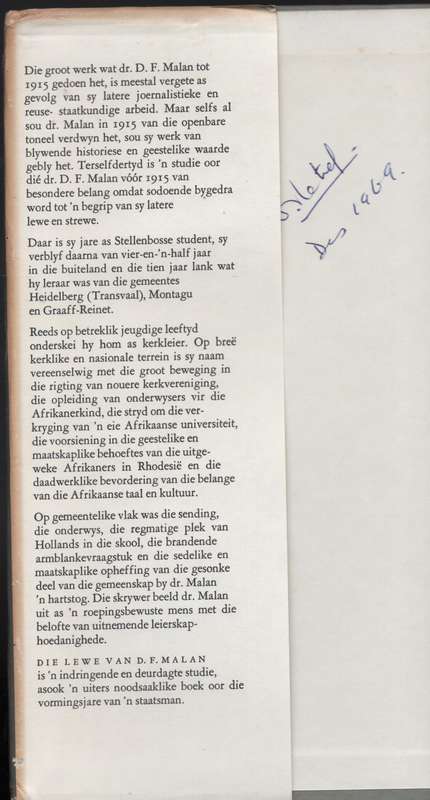 Die groot werk wat dr. D. F. Malan tot
1915 gedoen het, is meestal vergete as
gevolg van sy latere joernalistieke en
reuse- staatkundige arbeid. Maar selfs al
sou dr. Malan in 1915 van die openbare
toneel verdwyn het, sou sy werk van
blywende historiese en geestelike waarde
gebly het. Terselfdertyd is 'n studie oor
dié dr. D. F. Malan vóór 1915 van
besondere belang omdat sodoende bygedra
word tot 'n begrip van sy latere
lewe en strewe.
Daar is sy jare as Stellenbosse student, sy
verblyf daarna van vier-en-'n-half jaar
in die buiteland en die tien jaar lank wat
hy leraar was van die gemeentes
Heidelberg (Transvaal), Montagu
en Graaff-Reinet.
Reeds op betreklik jeugdige leeftyd
onderskei hy hom as kerkleier. Op breë
kerklike en nasionale terrein is sy naam
vereenselwig met die groot beweging in
die rigting van nouere kerkvereniging,
die opleiding van onderwysers vir die
Afrikanerkind, die stryd om die ver-
kryging van 'n eie Afrikaanse universiteit,
die voorsiening in die geestelike en
maatskaplike behoeftes van die uitge-
weke Afrikaners in Rhodesië en die
daadwerklike bevordering van die belange
van die Afrikaanse taal en kultuur.
Op gemeentelike vlak was die sending,
die onderwys, die regmatige plek van
Hollands in die skool, die brandende
armblankevraagstuk en die sedelike en
maatskaplike opheffing van die gesonke
deel van die gemeenskap by dr. Malan
'n hartstog. Die skrywer beeld dr. Malan
uit as 'n roepingsbewuste mens met die
belofte van uitnemende leierskap-
hoedanighede.
DIE LEWE VAN D. F. MALAN
is 'n indringende en deurdagte studie,
asook 'n uiters noodsaaklike boek oor die
vormingsjare van 'n staatsman.
Des 1969.